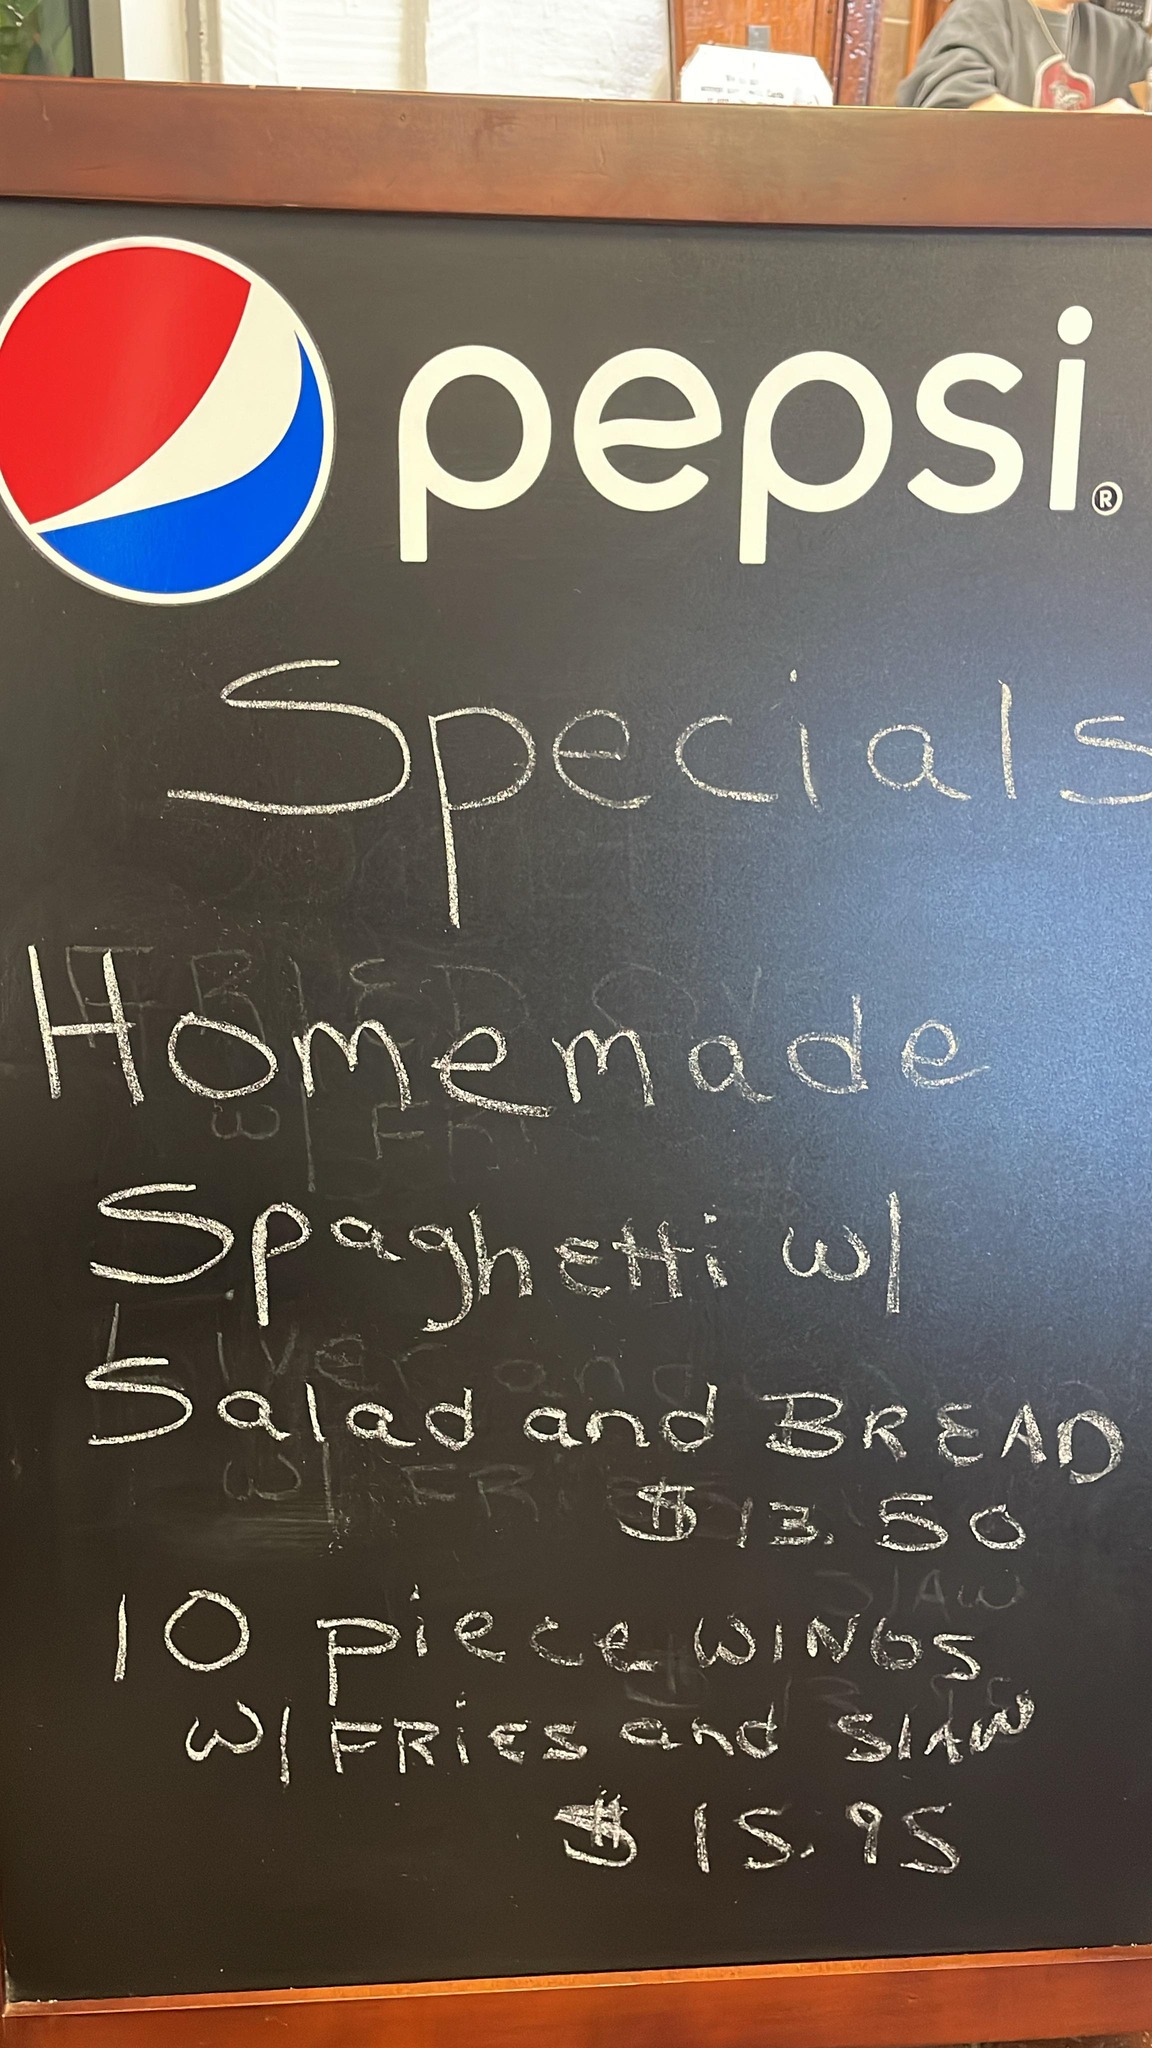 pepsi®
Specials
Homemade
Spaghetti w/
Salad and BREAD
$13.50
10 piece WINGS
w/ FRiES and SlAW
$15.95